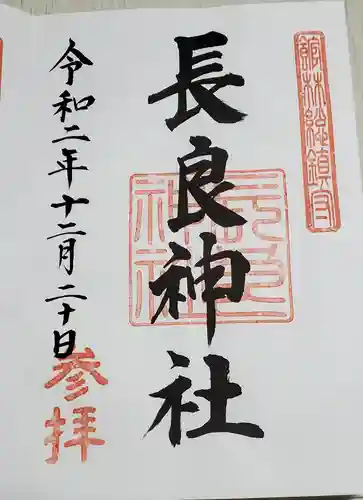 館林総鎮守
長良神社
長良神社
令和二年十二月二十日
参拝